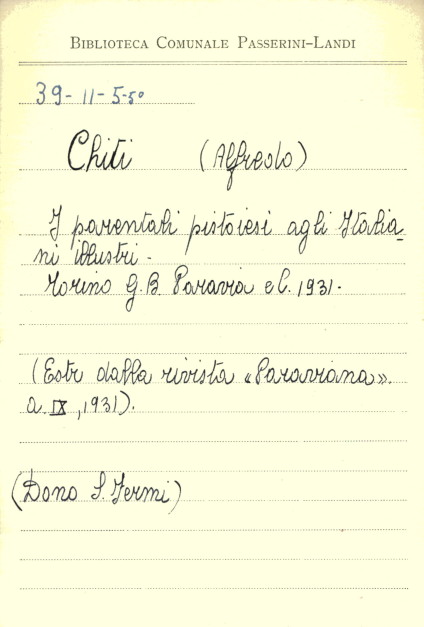 BIBLIOTECA COMUNALE PASSERINI-LANDI
39-11-5-50
Chiti (Alfredo)
I parentali pistoiesi agli Italia-
ni illustri.
Torino G. B. Paravia e C. 1931.
(Estr dalla rivista «Paraviana».
a. IX, 1931).
(Dono S. Fermi)